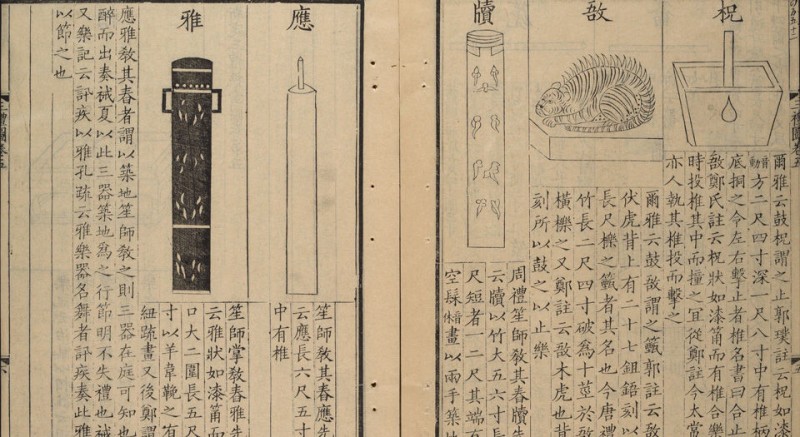 三禮圖卷五
柷
爾雅云鼓柷謂之止郭璞註云柷如漆
音動方二尺四寸深一尺八寸中有椎柄
底挏之令左右擊止者椎名書曰合止
敔鄭氏註云柷狀如漆筩而有椎合樂
時投椎其中而撞之宜從鄭註今太常
亦人執其椎投而擊之
敔
爾雅云鼓敔謂之籈郭註云敔
伏虎背上有二十七鉏鋙刻以
長尺櫟之籈者其名也今唐禮
竹長二尺四寸破為十莖於敔
橫櫟之又鄭註云敔木虎也背
刻所以鼓之以止樂
牘
周禮笙師教其舂牘先
云牘以竹大五六寸長
尺短者一二尺其端有
空髹休音畫以兩手築地
應
笙師教其舂應先
云應長六尺五寸
中有椎
雅
笙師掌教舂雅先
云雅狀如漆筩而
口大二圍長五尺
寸以羊韋鞔之有
紐疏畫又後鄭謂
應雅教其舂者謂以築地笙師教之則三器在庭可知也
醉而出奏祴夏以此三器築地為之行節明不失禮也祴
又樂記云訊疾以雅孔疏云雅樂器名舞者訊疾奏此雅
以節之也
三禮圖卷五
六